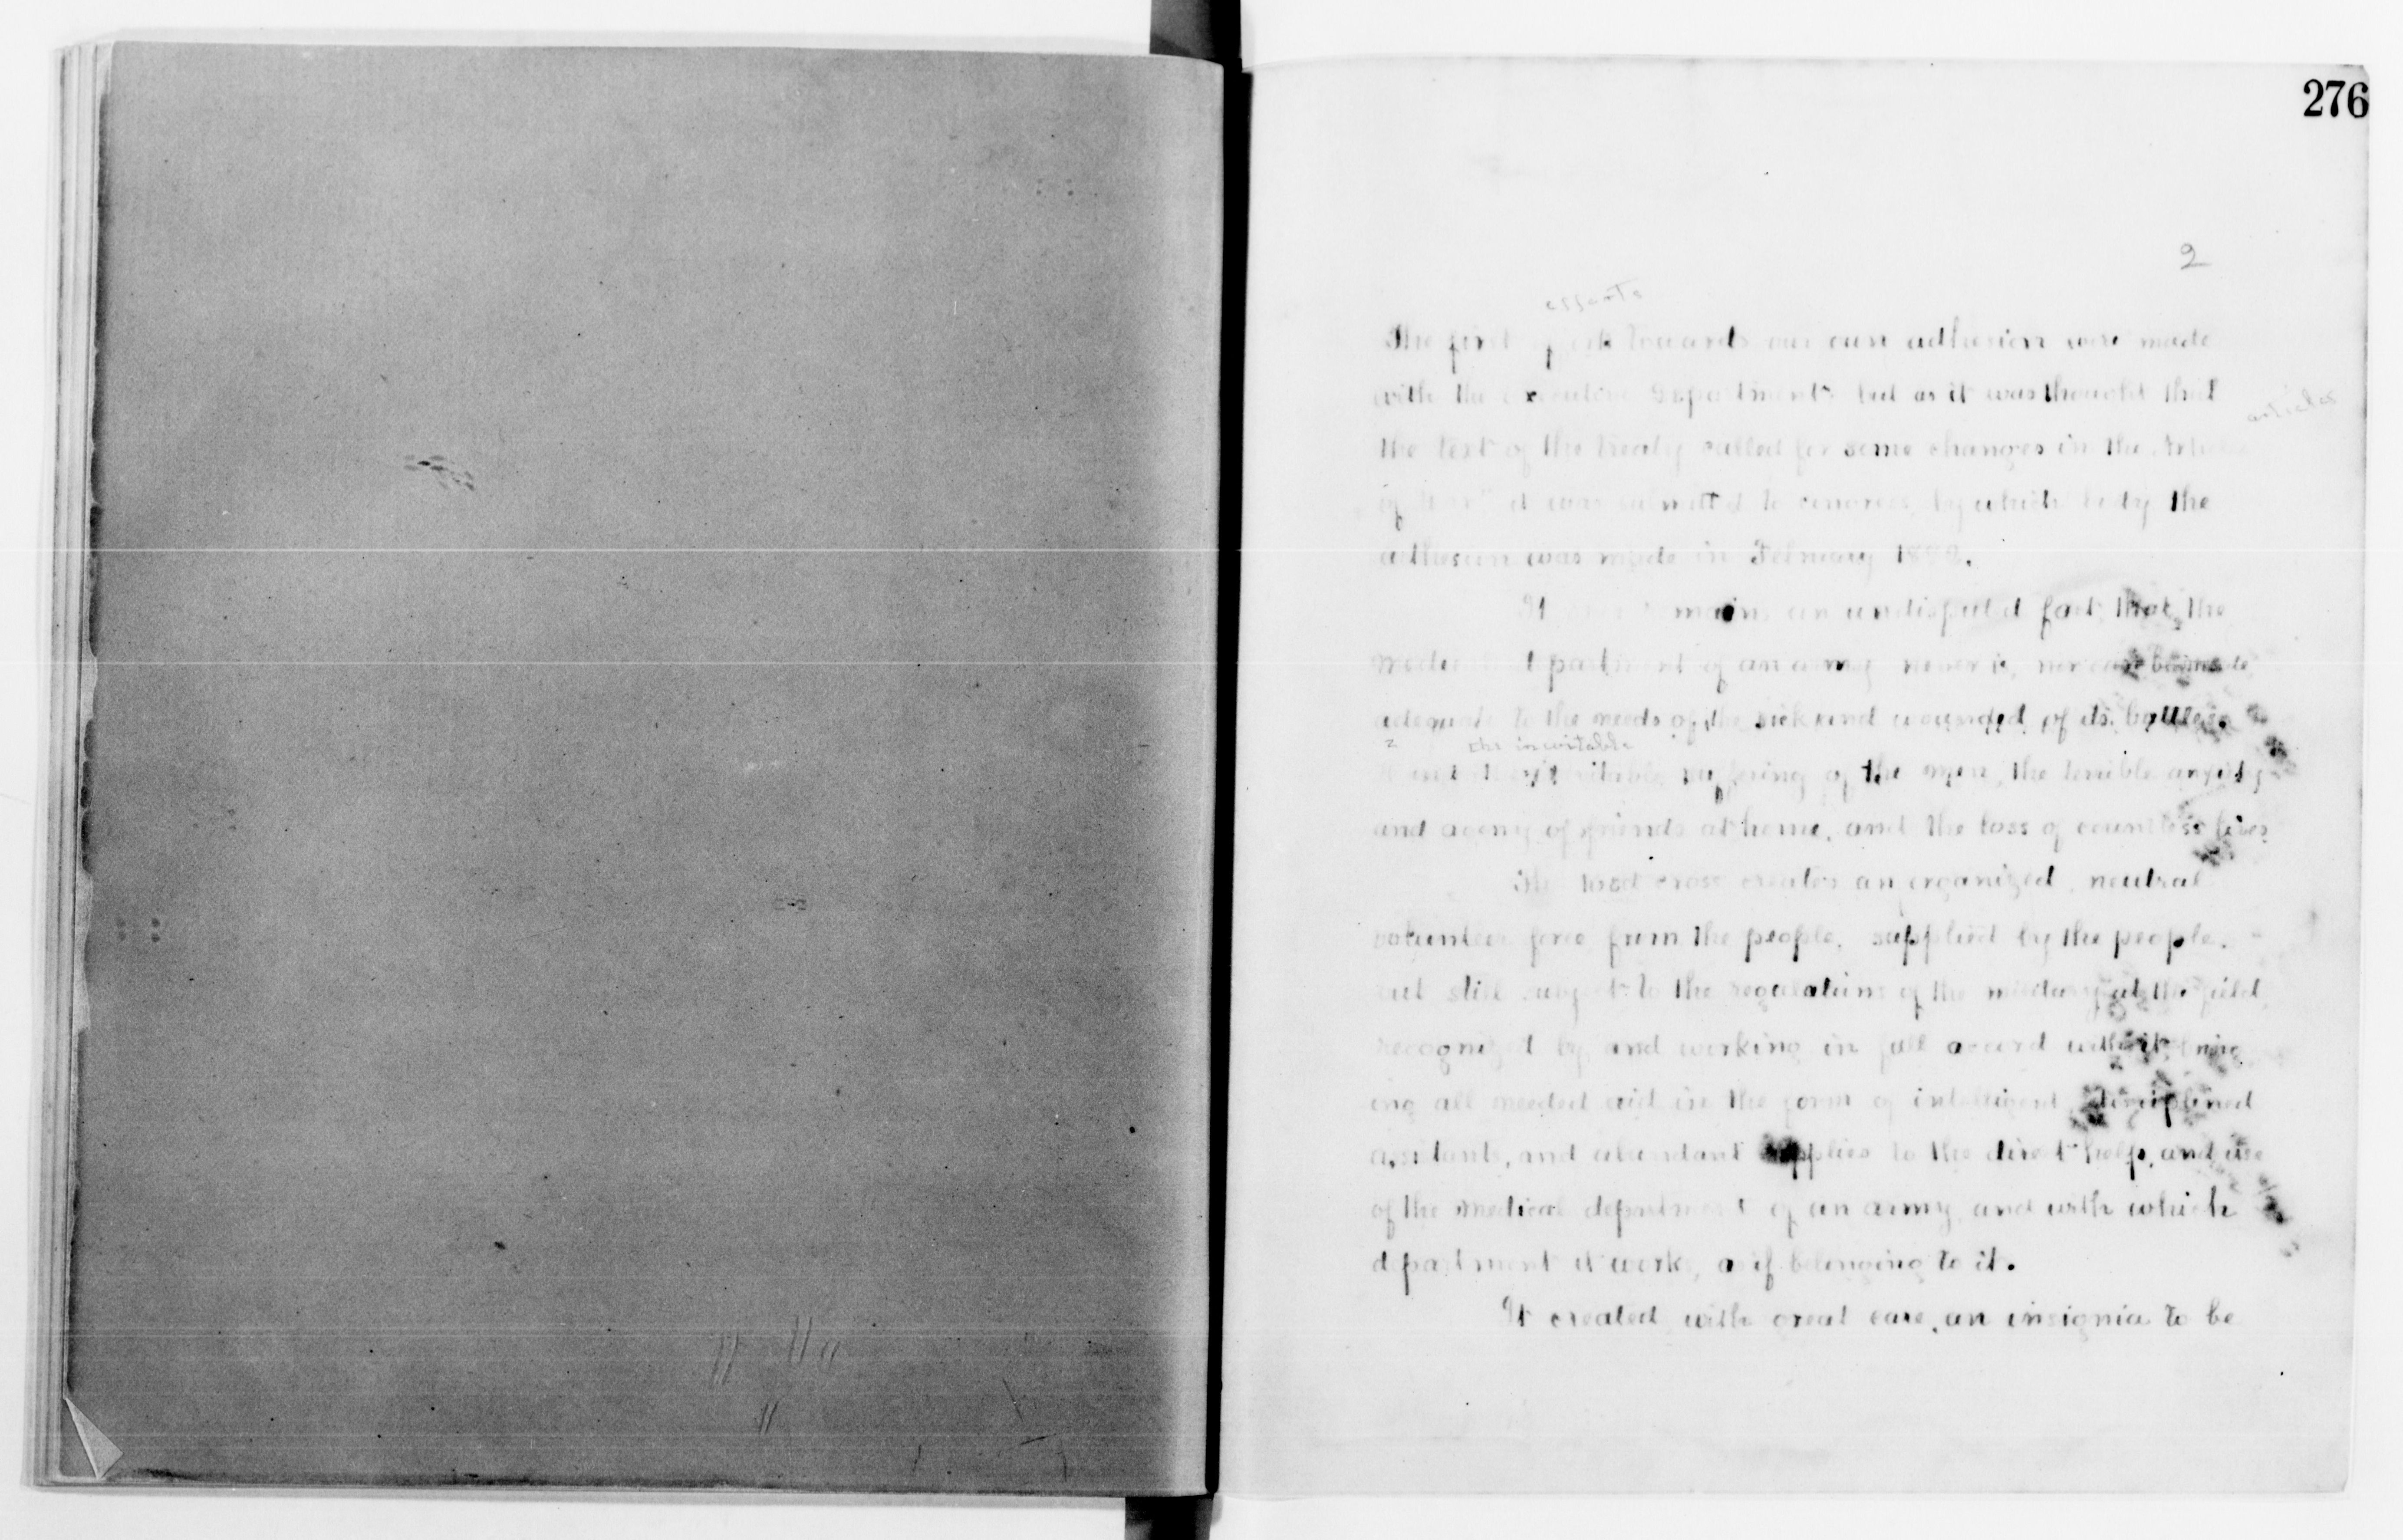 276
2
efforts
The first efforts towards our own adhesion were made
with the executive Departments but as it was thought that
articles
the text of the treaty called for some changes in the Articles
of War" it was submitted to congress, by which body the
adhesion was made in February 1882.
It remains an undisputed fact that, the
medical department of an army never is, nor can be made
adequate to the needs of the sick and wounded of its battles.
the inevitable
suffering of the men, the terrible anxiety
and agony of friends at home, and the loss of countless lives.
The Red cross creates an organized, neutral
volunteer force from the people, supplied by the people,
but still subject to the regulations of the military at the field
recognized by and working in full accord with it, bring
ing all needed aid in the form of intelligent disciplined
assistants, and abundant supplies to the direct help, and use
of the medical department of an army and with which
department it works, as if belonging to it.
It created with great care, an insignia to be